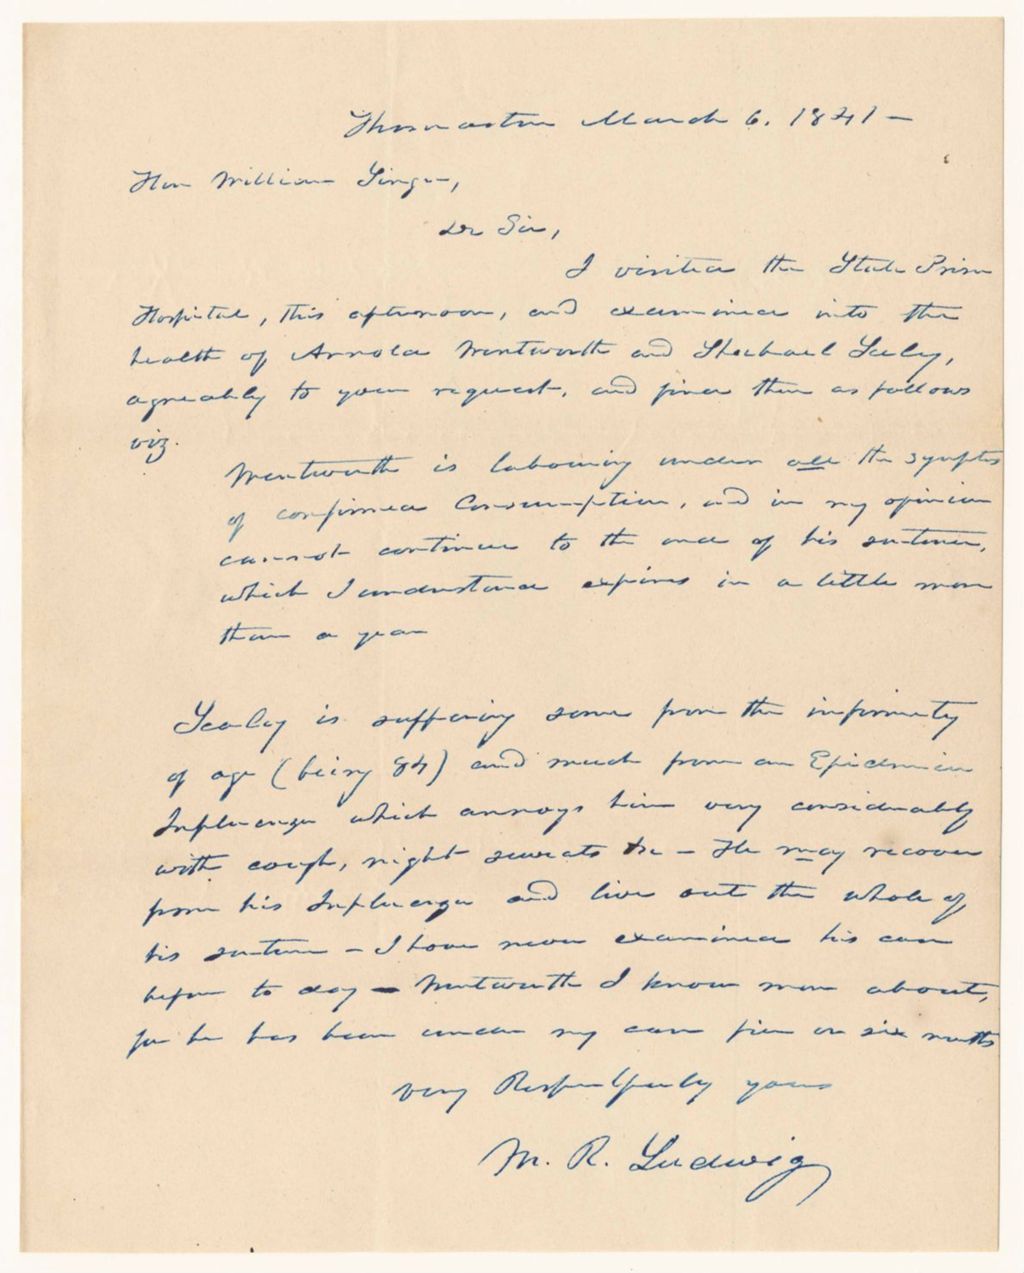 Thomaston March 6. 1841 —
Hon William Singer,
Dr Sir,
I visited the State Prison
Hospital, this afternoon, and examined into the
health of Arnold Wentworth and Seeley,
agreeably to your request, and find them as follows
viz.
Wentworth is labouring under all the symptoms
of confirmed Consumption, and in my opinion
cannot continue to the end of his sentence,
which I understand expires in a little more
than a year
Sealey is suffering some from the infirmity
of age (being 84) and much from an Epidemic
Influenza which annoys him very considerably
with cough, night sweats &c — He may recover
from his Influenza and live out the whole of
his sentence — I have never examined his case
before to day — Wentworth I know more about,
for he has been under my care five or six months
very Respectfully yours
M. R. Ludwig